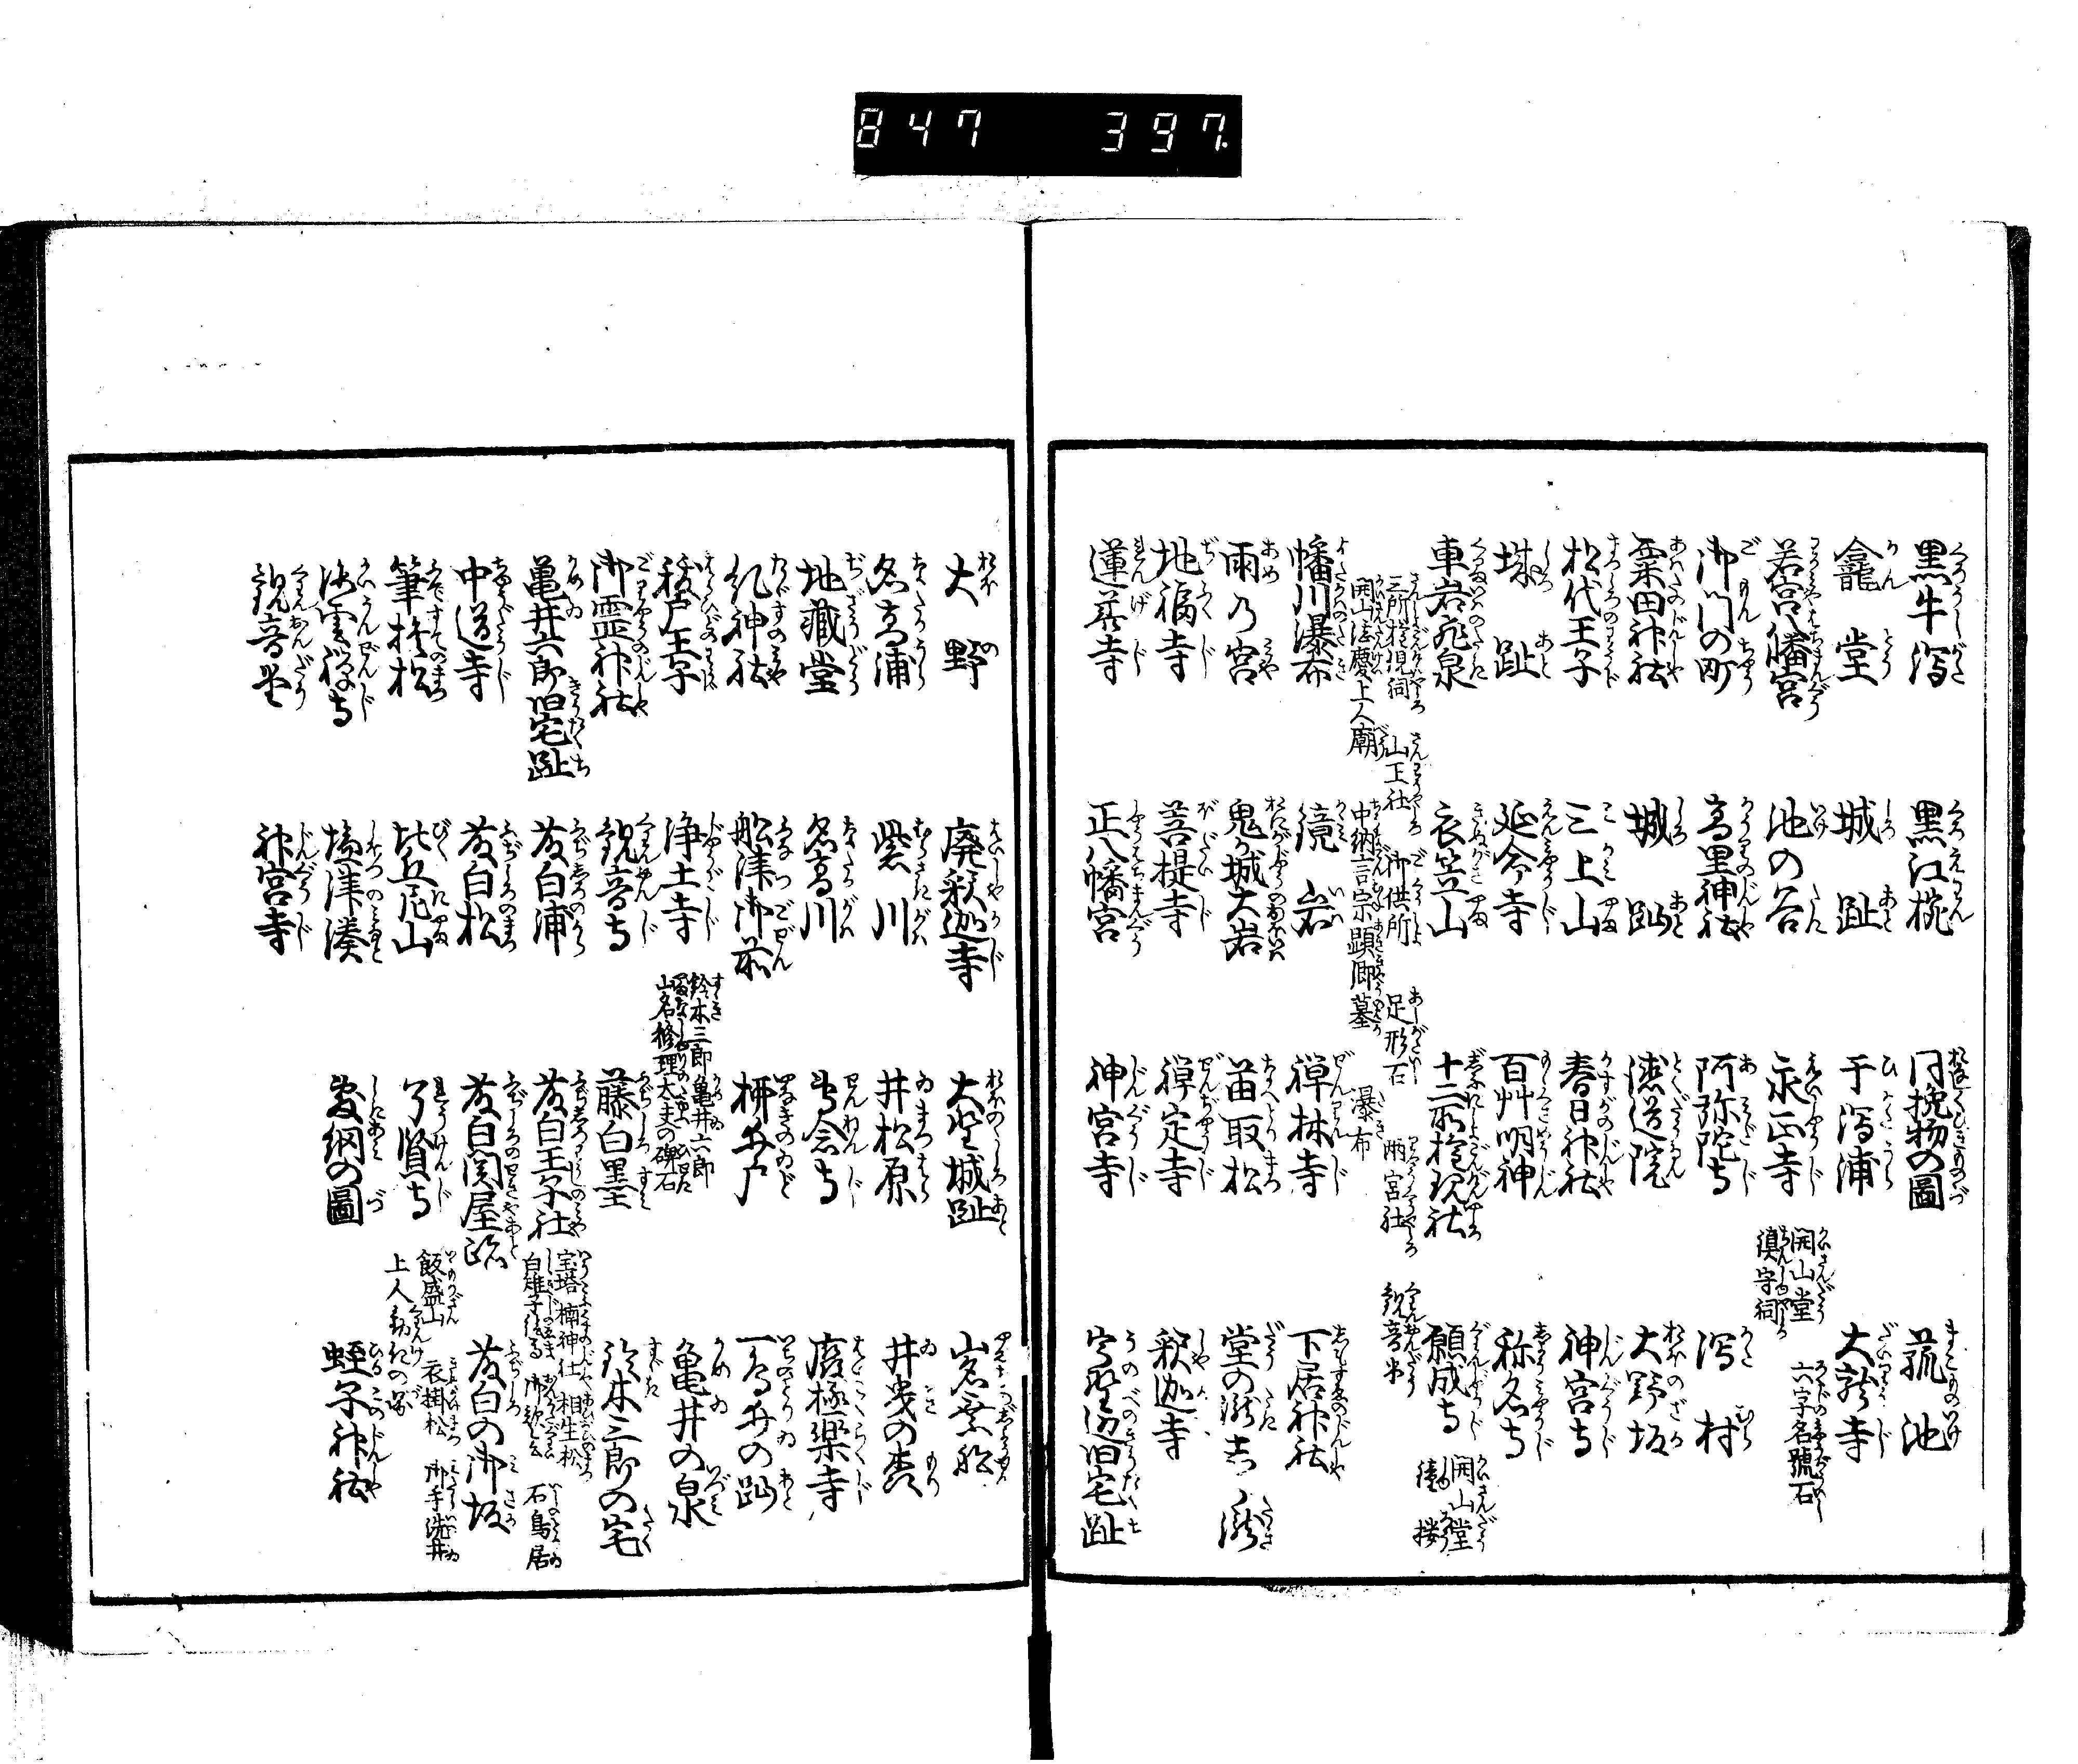 847 397.
黒牛潟 黒江椀 同挽物の圖 菰池
龕堂 城趾 干潟浦 大龍寺
開山堂 六字名號石
鎮守祠
若宮八幡宮 池の谷 永正寺
御門の町 高里神社 阿弥陀寺 潟村
粟田神社 城趾 徳道院 大野坂
松代王子 三上山 春日神社 神宮寺
城趾 延命寺 百艸明神 称名寺
車岩飛泉 衣笠山 十二所権現社 願成寺
開山堂 鐘楼
三所権現祠 山王社 御供所 足形石 瀑布 両宮社 観音堂
開山法慶上人廟 中納言宗顕卿墓
幡川瀑布 鏡岩 禅林寺 下居神社
雨乃宮 鬼ヶ城大岩 苗取松
地福寺 菩提寺 禅定寺 釈迦寺
蓮華寺 正八幡宮 神宮寺 宇野辺旧宅趾
大野 廃釈迦寺 大野城趾
名高浦 紫川 井松原 井曳の森
地蔵堂 名高川 専念寺 廃極楽寺
糺神社 船津御前 柳井戸 一鳥井の趾
祓戸王子 浄土寺 亀井の泉
鈴木三郎 亀井六郎
山名修理太夫の碑石
御霊神社 観音寺 藤白墨 鈴木三郎の宅
亀井六郎旧宅趾 藤白浦 藤白王子社
宝塔 楠神社 相生松
石鳥居
中道寺 藤白松 藤白関屋跡 藤白の御坂
筆捨松 比丘尼山 了賢寺
飯盛山 衣掛松 御手洗井
上人
海雲禅寺 塩津湊 蛭子神社
観音堂 神宮寺